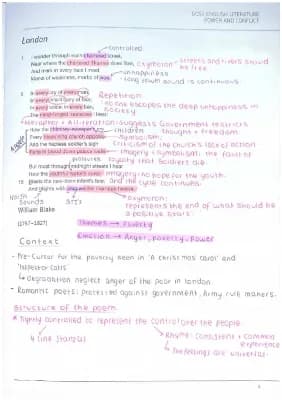 GCSE ENGLISH LITERATURE
POWER AND CONFLICT
London
controlled
I wander through each chartered street,
Near where the chartered Thames does flow,
oxymoron
streets and rivers should
be free
And mark in every face I meet
unhappiness
Marks of weakness, marks of woe.
long vowel sound is continuous
In every cry of every man,
Repetition:
In every infant's cry of fear,
no one escapes the deep unhappiness in
society
In every voice, in every ban,
The mind-forged manacles I hear:
Metaphor + Alliteration: suggests Government restricts
thought + freedom.
How the chimney-sweeper's cry
children
Every blackening church appals,
symbolism:
criticism of the church's lack of action
And the hapless soldier's sigh
Runs in blood down palace walls.
imagery + symbolism: the fault of
royalty that soldiers die.
But most through midnight streets I hear
How the youthful harlot's curse
imagery: no hope for the youth.
Blasts the new-born infant's tear,
and the cycle continues.
And blights with plagues the marriage hearse.
Harsh
sounds
STI's
oxymoron:
represents the end of what should be
a positive start.
William Blake
(1757–1827)
Themes → Poverty
Emotion → Anger, poverty, Power
Context
- Pre-Cursor for the poverty seen in 'A christmas carol' and
'Inspector calls'
↳ degradation neglect anger of the poor in london.
- Romantic poets: protested against government, army rule makers.
Structure of the poem
* Tightly controlled to represent the control over the people.
↳ 4 line stanzas
↳ Rhyme: consistent + common
experience
↳ The feelings are universal.